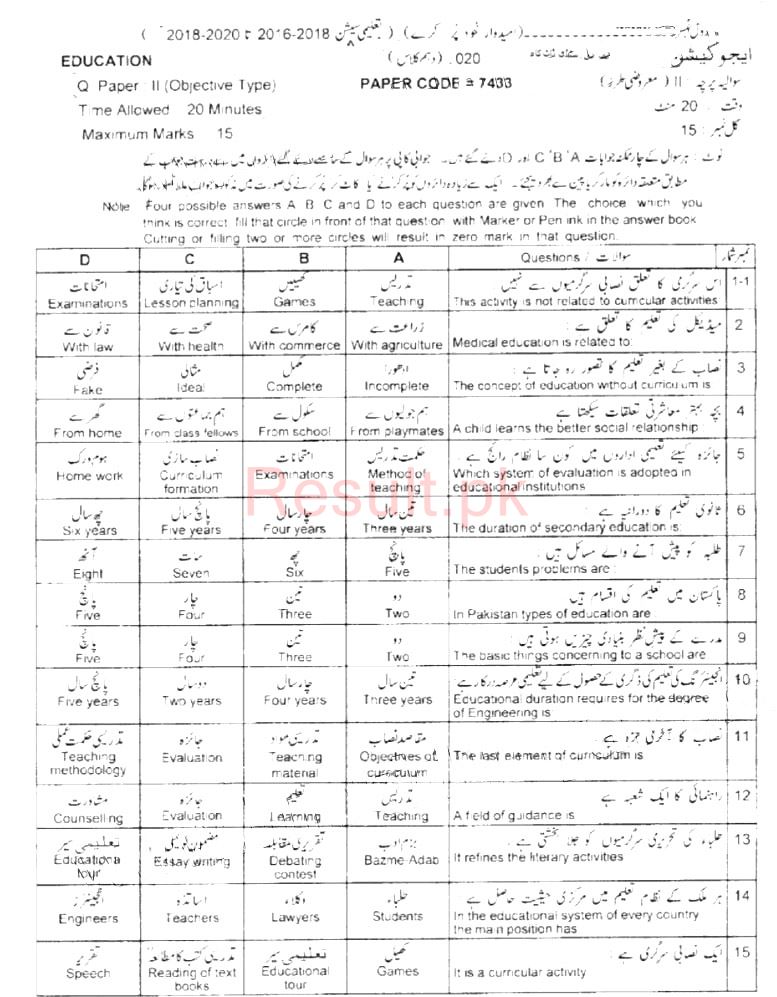 (امیدوار خود پُر کرے) (تعلیمی سیشن 2018-2016 تا 2020-2018)
ایجوکیشن
EDUCATION 020. (دہم کلاس)
سوالیہ پرچہ : II (معروضی طرز)
Q Paper : II (Objective Type) PAPER CODE = 7433
وقت : 20 منٹ
Time Allowed 20 Minutes
کل نمبر : 15
Maximum Marks 15
نوٹ : ہر سوال کے چار ممکنہ جوابات C ' B ' A اور D دئے گئے ہیں۔ جوابی کاپی پر ہر سوال کے سامنے دئے گئے دائروں میں سے درست جواب کے
مطابق متعلقہ دائرہ کو مارکر یا پین سے بھر دیجئے۔ ایک سے زیادہ دائروں کو پُر کرنے یا کاٹ کر پُر کرنے کی صورت میں مذکورہ جواب غلط تصور ہوگا۔
Note Four possible answers A B C and D to each question are given The choice which you
think is correct fill that circle in front of that question with Marker or Pen ink in the answer book
Cutting or filling two or more circles will result in zero mark in that question.
D C B A Questions / سوالات نمبر شمار
امتحانات اسباق کی تیاری کھیلیں تدریس اس سرگرمی کا تعلق نصابی سرگرمیوں سے نہیں 1-1
Examinations Lesson planning Games Teaching This activity is not related to curricular activities
قانون سے صحت سے کامرس سے زراعت سے میڈیکل کی تعلیم کا تعلق ہے : 2
With law With health With commerce With agriculture Medical education is related to:
فرضی مثالی مکمل ادھورا نصاب کے بغیر تعلیم کا تصور رہ جاتا ہے : 3
Fake Ideal Complete Incomplete The concept of education without curriculum is
گھر سے ہم جماعتوں سے سکول سے ہم جولیوں سے بچہ بہتر معاشرتی تعلقات سیکھتا ہے 4
From home From class fellows From school From playmates A child learns the better social relationship :
ہوم ورک نصاب سازی امتحانات حکمت تدریس جائزہ کیلئے تعلیمی اداروں میں کون سا نظام رائج ہے۔ 5
Home work Curriculum Examinations Method of Which system of evaluation is adopted in
formation teaching educational institutions
چھ سال پانچ سال چار سال تین سال ثانوی تعلیم کا دورانیہ ہے : 6
Six years Five years Four years Three years The duration of secondary education is:
آٹھ سات چھ پانچ طلبہ کو پیش آنے والے مسائل ہیں : 7
Eight Seven Six Five The students problems are :
پانچ چار تین دو پاکستان میں تعلیم کی اقسام ہیں 8
Five Four Three Two In Pakistan types of education are
پانچ چار تین دو مدرسے کے پیش نظر بنیادی چیزیں ہوتی ہیں : 9
Five Four Three Two The basic things concerning to a school are
پانچ سال دو سال چار سال تین سال انجینئرنگ کی تعلیم کی ڈگری کے حصول کے لیے تعلیمی عرصہ درکار ہے: 10
Five years Two years Four years Three years Educational duration requires for the degree
of Engineering is
تدریسی حکمت عملی جائزہ تدریسی مواد مقاصد نصاب نصاب کا آخری جزو ہے 11
Teaching Evaluation Teaching Objectives of The last element of curriculum is
methodology material curriculum
مشاورت جائزہ تعلیم تدریس راہنمائی کا ایک شعبہ ہے 12
Counselling Evaluation Learning Teaching A field of guidance is
تعلیمی سیر مضمون نویسی تقریری مقابلہ بزم ادب طلباء کی تحریری سرگرمیوں کو جلا بخشتی ہے۔ 13
Educationa Essay writing Debating Bazme-Adab It refines the literary activities
tour contest
انجینئرز اساتذہ وکلاء طلباء ہر ملک کے نظام تعلیم میں مرکزی حیثیت حاصل ہے 14
Engineers Teachers Lawyers Students In the educational system of every country
the main position has
تقریر تدریسی کتب کا مطالعہ تعلیمی سیر کھیل ایک نصابی سرگرمی ہے : 15
Speech Reading of text Educational Games It is a curricular activity
books tour
Result.pk